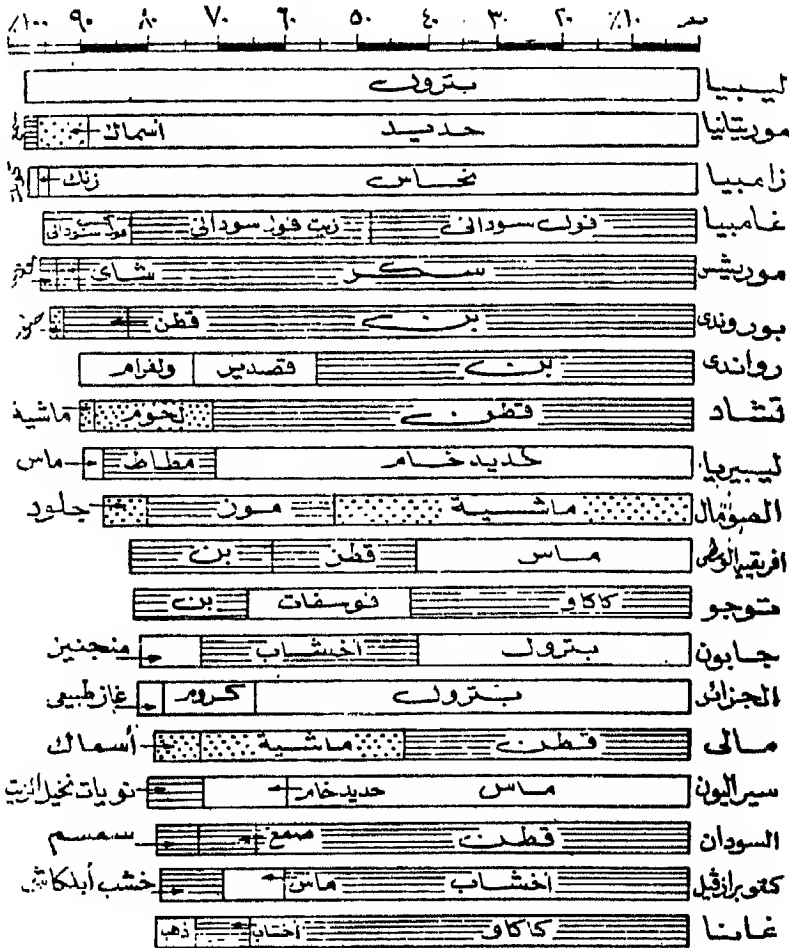 صفر ١٠٪ ٢٠ ٣٠ ٤٠ ٥٠ ٦٠ ٧٠ ٨٠ ٩٠ ١٠٠٪
ليبيا بترول
موريتانيا حديد اسماك
زامبيا نحاس زنك
غامبيا فول سودانى زيت فول سودانى كسب فول سودانى
موريشس سكر شاى
بوروندى بن قطن
رواندى بن قصدير ولفرام
تشاد قطن لحوم ماشية
ليبيريا حديد خام مطاط ماس
الصومال ماشية موز جلود
افريقيا الوسطى ماس قطن بن
توجو كاكاو فوسفات بن
جابون بترول أخشاب منجنيز
الجزائر بترول كروم غاز طبيعى
مالى قطن ماشية أسماك
سيراليون ماس حديد خام نويات نخيل الزيت
السودان قطن صمغ سمسم
كنغو برازفيل أخشاب ماس خشب أبلكاش
غانا كاكاو أخشاب ذهب